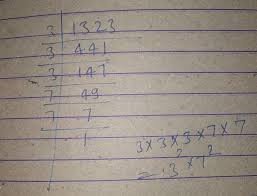 3 | 1323
3 | 441
3 | 147
7 | 49
7 | 7
1
3×3×3×7×7
= 3² × 7²